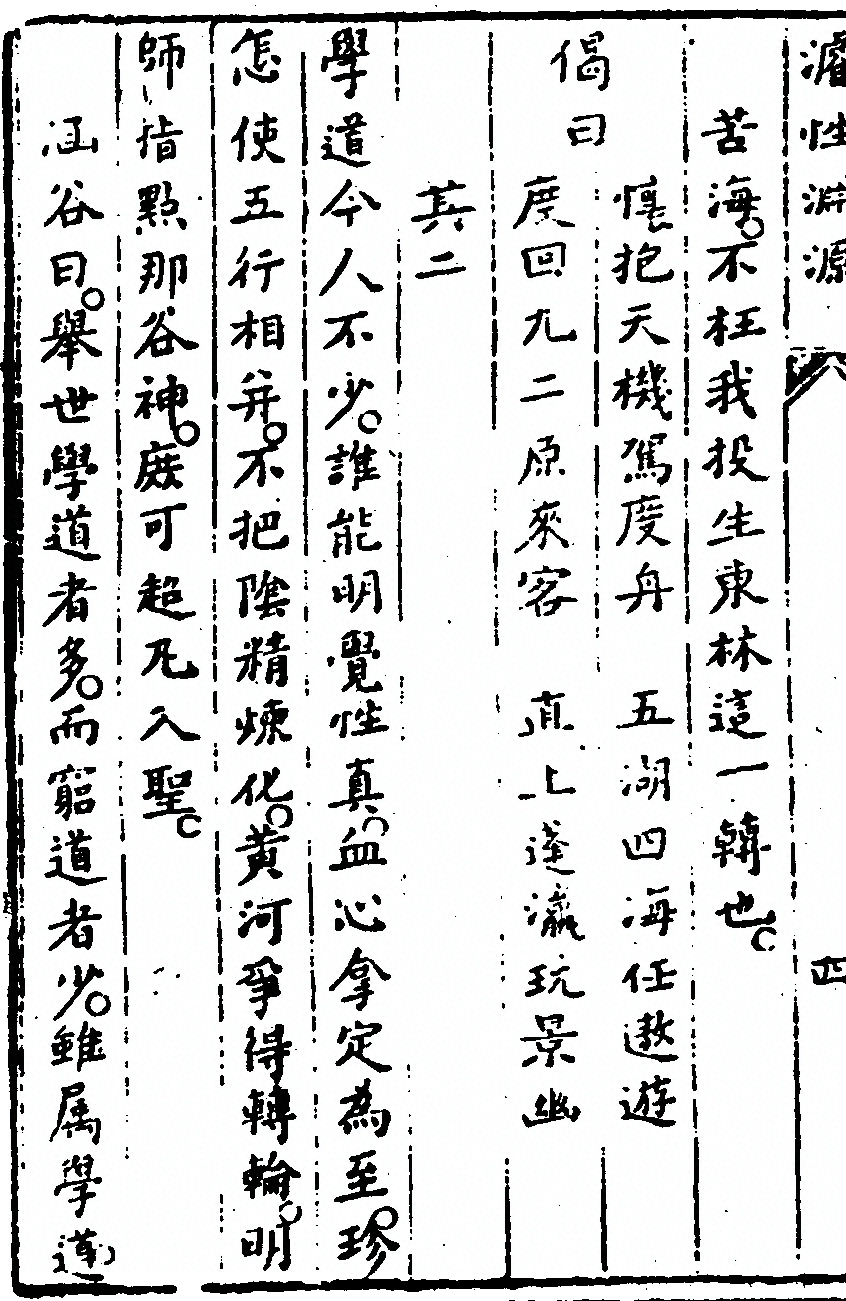 濬性淵源
四
苦海。不枉我投生東林這一轉也。
偈曰
懷抱天機駕度舟 五湖四海任遨遊
度回九二原來客 直上蓬瀛玩景幽
其二
學道今人不少。誰能明覺性真。血心拿定為至珍。
怎使五行相并。不把陰精煉化。黃河爭得轉輪。明
師指點那谷神。庶可超凡入聖。
涵谷曰。舉世學道者多。而窮道者少。雖属學道